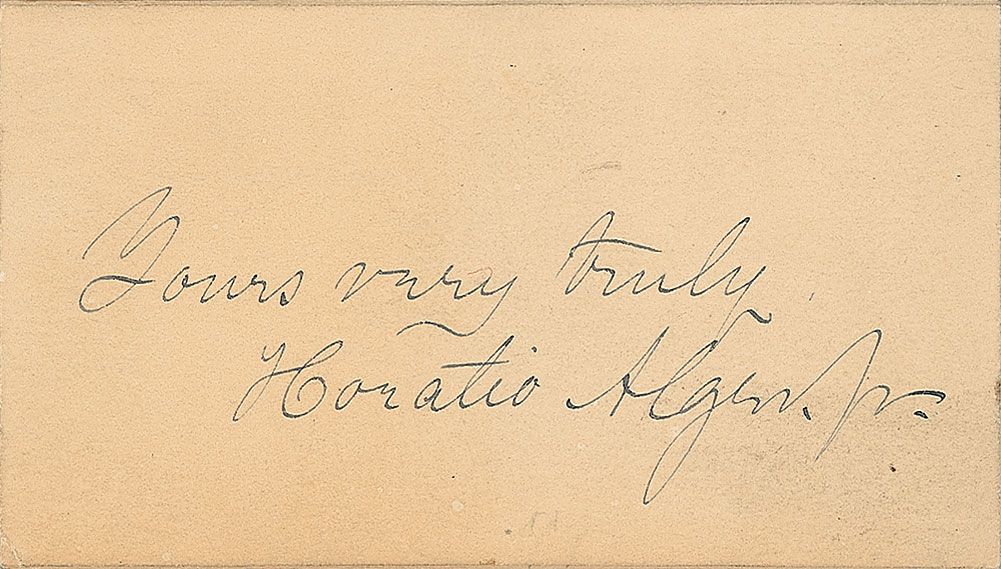 Yours very truly,
Horatio Alger. Jr.